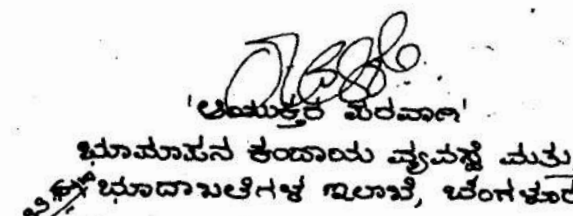 'ಆಯುಕ್ತರ ಪರವಾಗಿ'
ಭೂಮಾಪನ ಕಂದಾಯ ವ್ಯವಸ್ಥೆ ಮತ್ತು
ಭೂದಾಖಲೆಗಳ ಇಲಾಖೆ, ಬೆಂಗಳೂರ